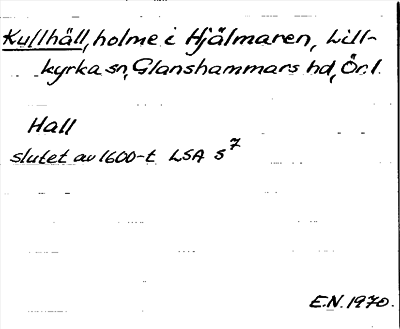 Kullhäll, holme i Hjälmaren, Lill-
kyrka sn, Glanshammars hd, Ör.l.
Hall
slutet av 1600-t LSA S7
E.N. 1970.